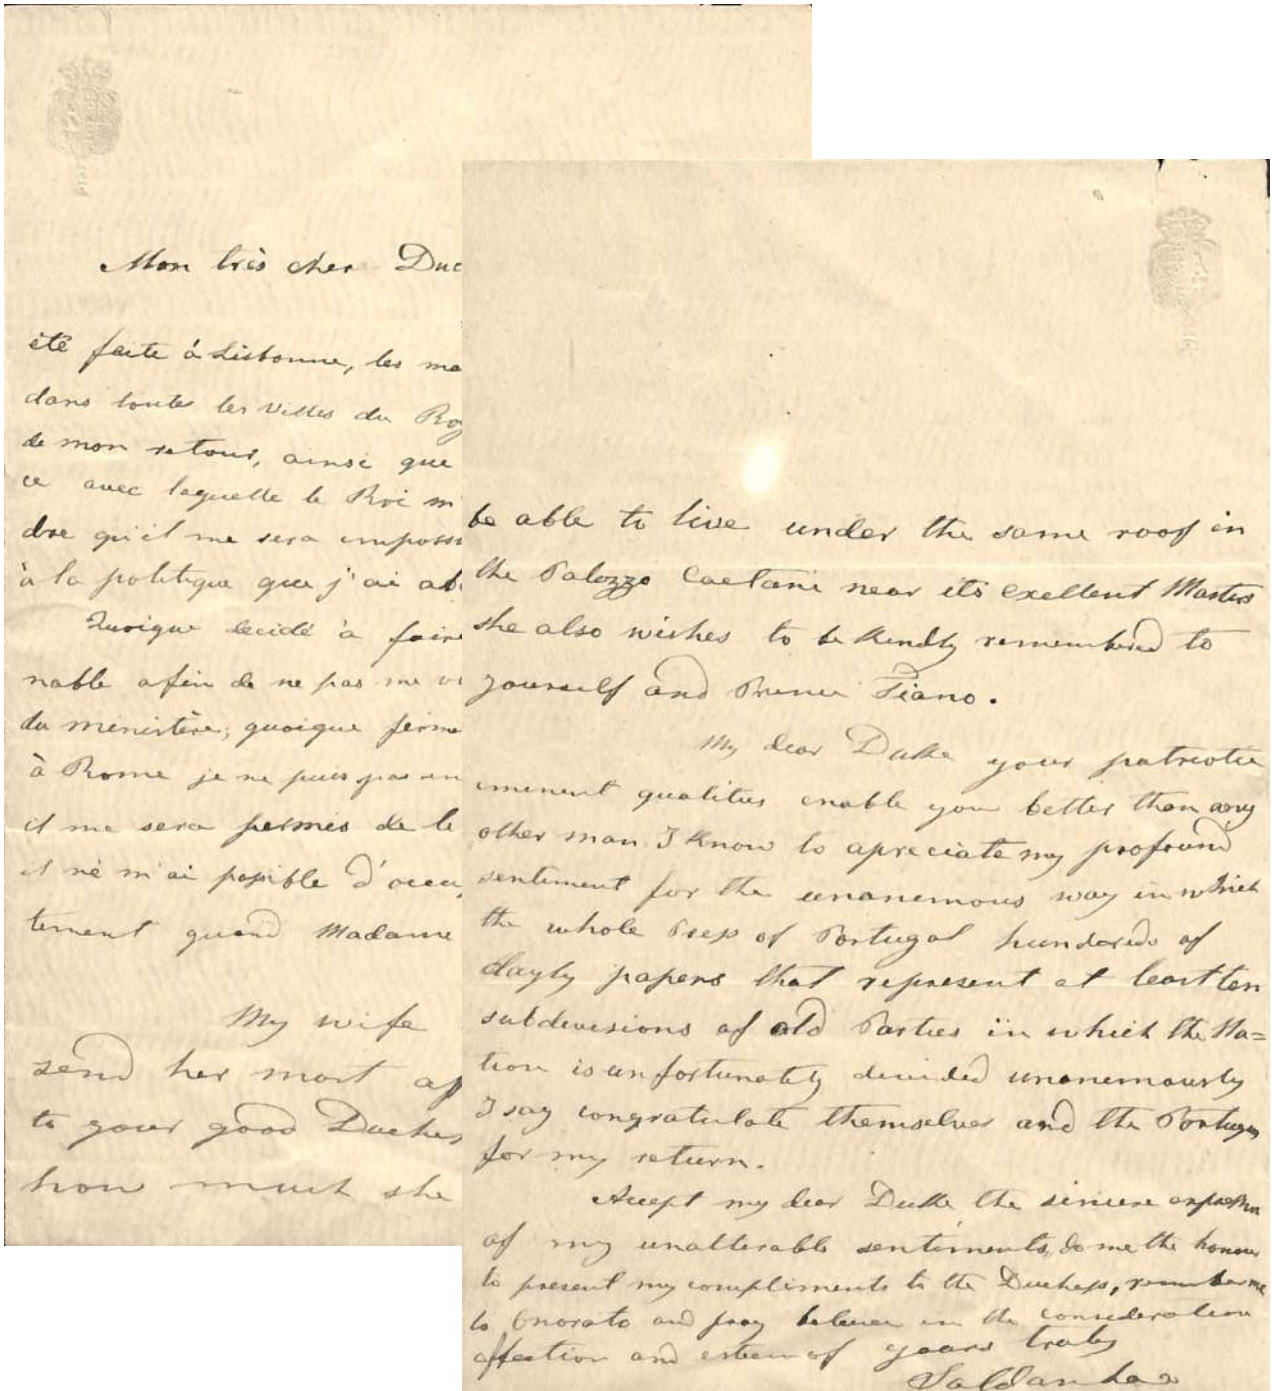 Mon très cher Duc
été faite à Lisbonne, les ma
dans toutes les villes du Roy
de mon retour, ainsi que
ce avec laquelle le Roi m
dre qu'il me sera imposs
à la politique que j'ai ab
Quoique decidé à faire
nable afin de ne pas me
du menistère; quoique ferme
à Rome je ne puis pas en
il me sera permis de le
il ne m'ai possible d'occu
tement quand Madame
My wife
send her most af
to your good Duches
how much she
be able to live under the same roof in
the Palozzo Caetani near its exellent Masters
she also wishes to be kindly remembered to
yourself and Prince Tiano.
My dear Duke your patriotic
eminent qualities enable you better than any
other man I know to apreciate my profound
sentiment for the unanemous way in which
the whole Press of Portugal hundereds of
dayly papers that represent at least ten
subdivisions of old Parties in which the Na=
tion is unfortunately devided unanemously
I say congratulate themselves and the Portugues
for my return.
Accept my dear Duke the sincere expression
of my unalterable sentiments, do me the honour
to present my compliments to the Duchess, remember me
to Onorato and pray beleive in the consideration
affection and esteem of yours truly
Saldanha